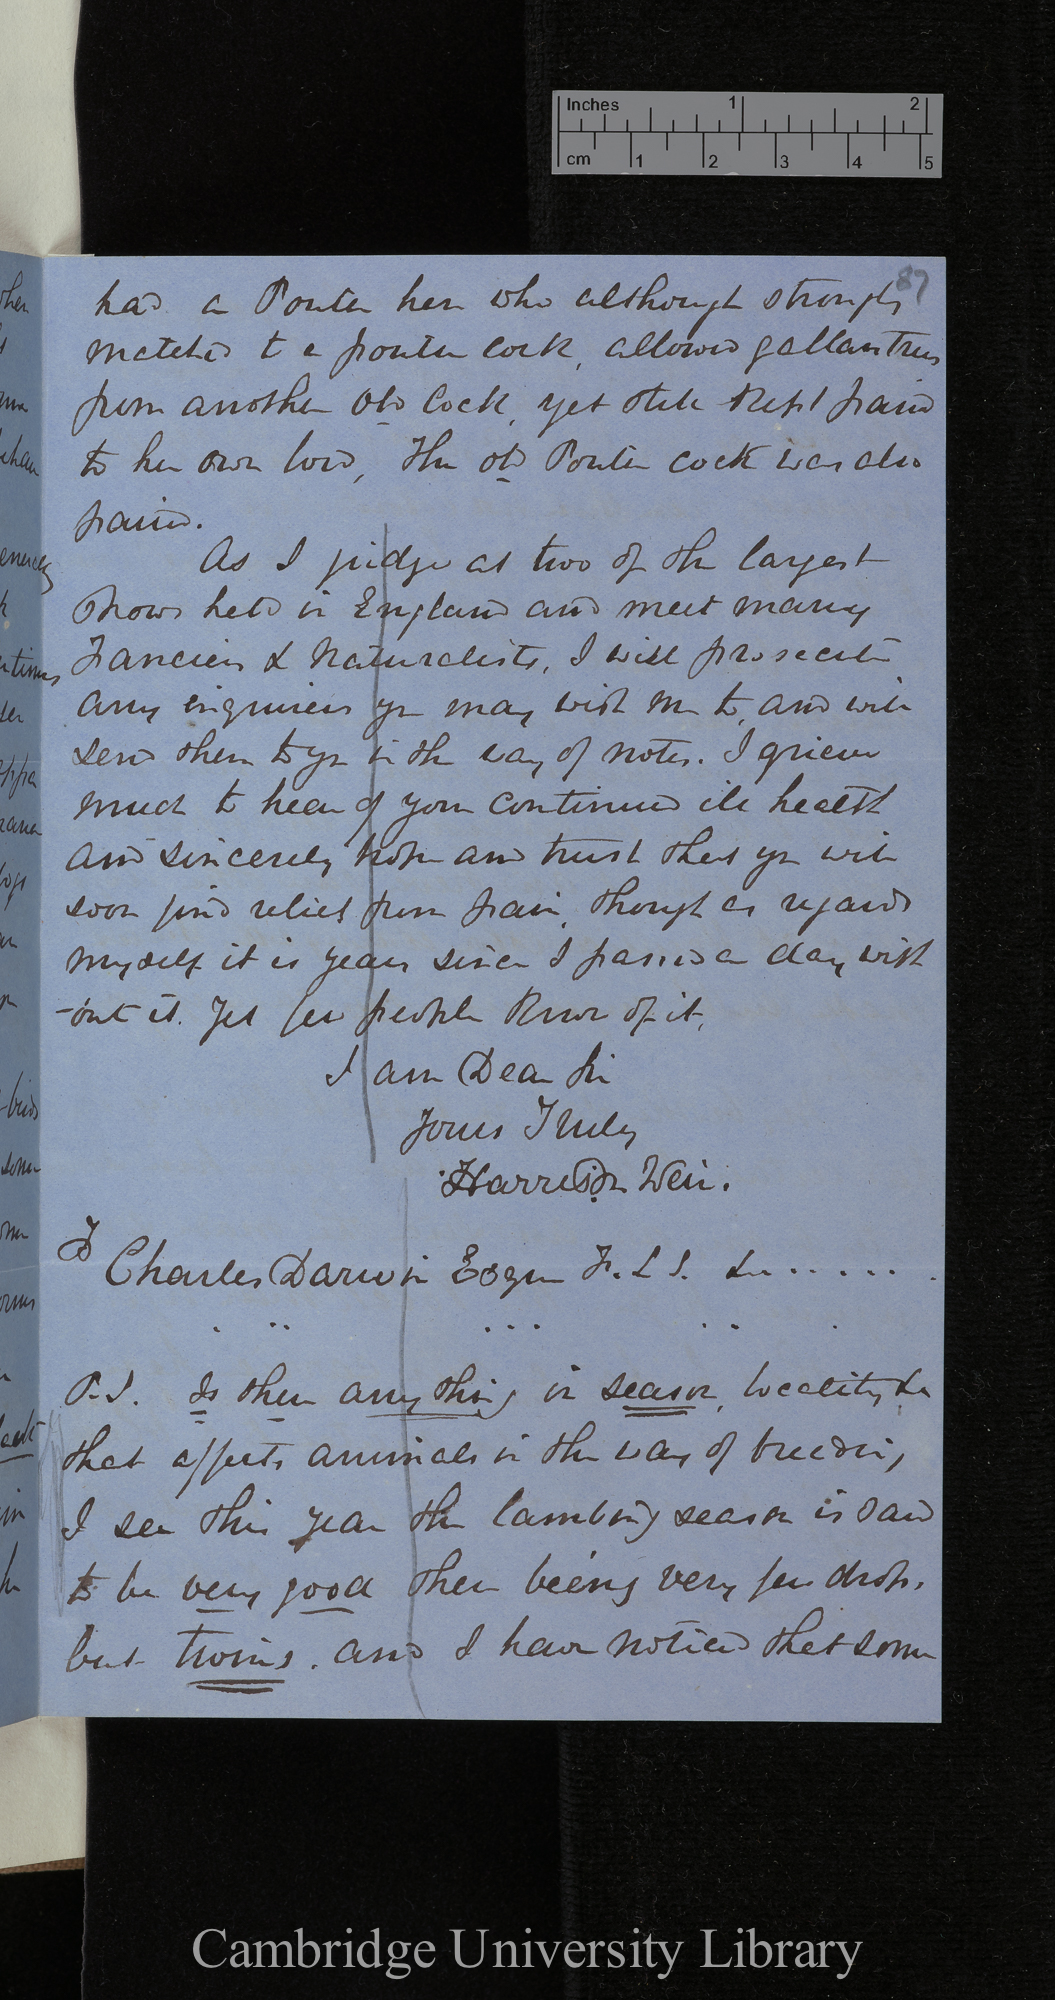 Inches 1 2
cm 1 2 3 4 5
87
had a Pouter hen who although strongly
matched to a pouter cock, allowed gallantries
from another old cock, yet still kept paired
to her own lord, The old Pouter cock was also
paired.
As I judge at two of the largest
Shows held in England and meet many
Fanciers & Naturalists, I will prosecute
any enquiries you may wish me to, and will
send them to you in the way of notes. I grieve
much to hear of your continued ill health
and sincerely hope and trust that you will
soon find relief from pain, though as regards
myself it is years since I passed a day with
-out it. Yet few people know of it,
I am Dear Sir
Yours Truly
Harrison Weir.
To
Charles Darwin Esqre F.L.S. &c......
P.S. Is there any thing in season, locality &c
that affects animals in the way of breeding
I see this year the lambing season is said
to be very good there being very few drops.
but twins. and I have noticed that some
Cambridge University Library